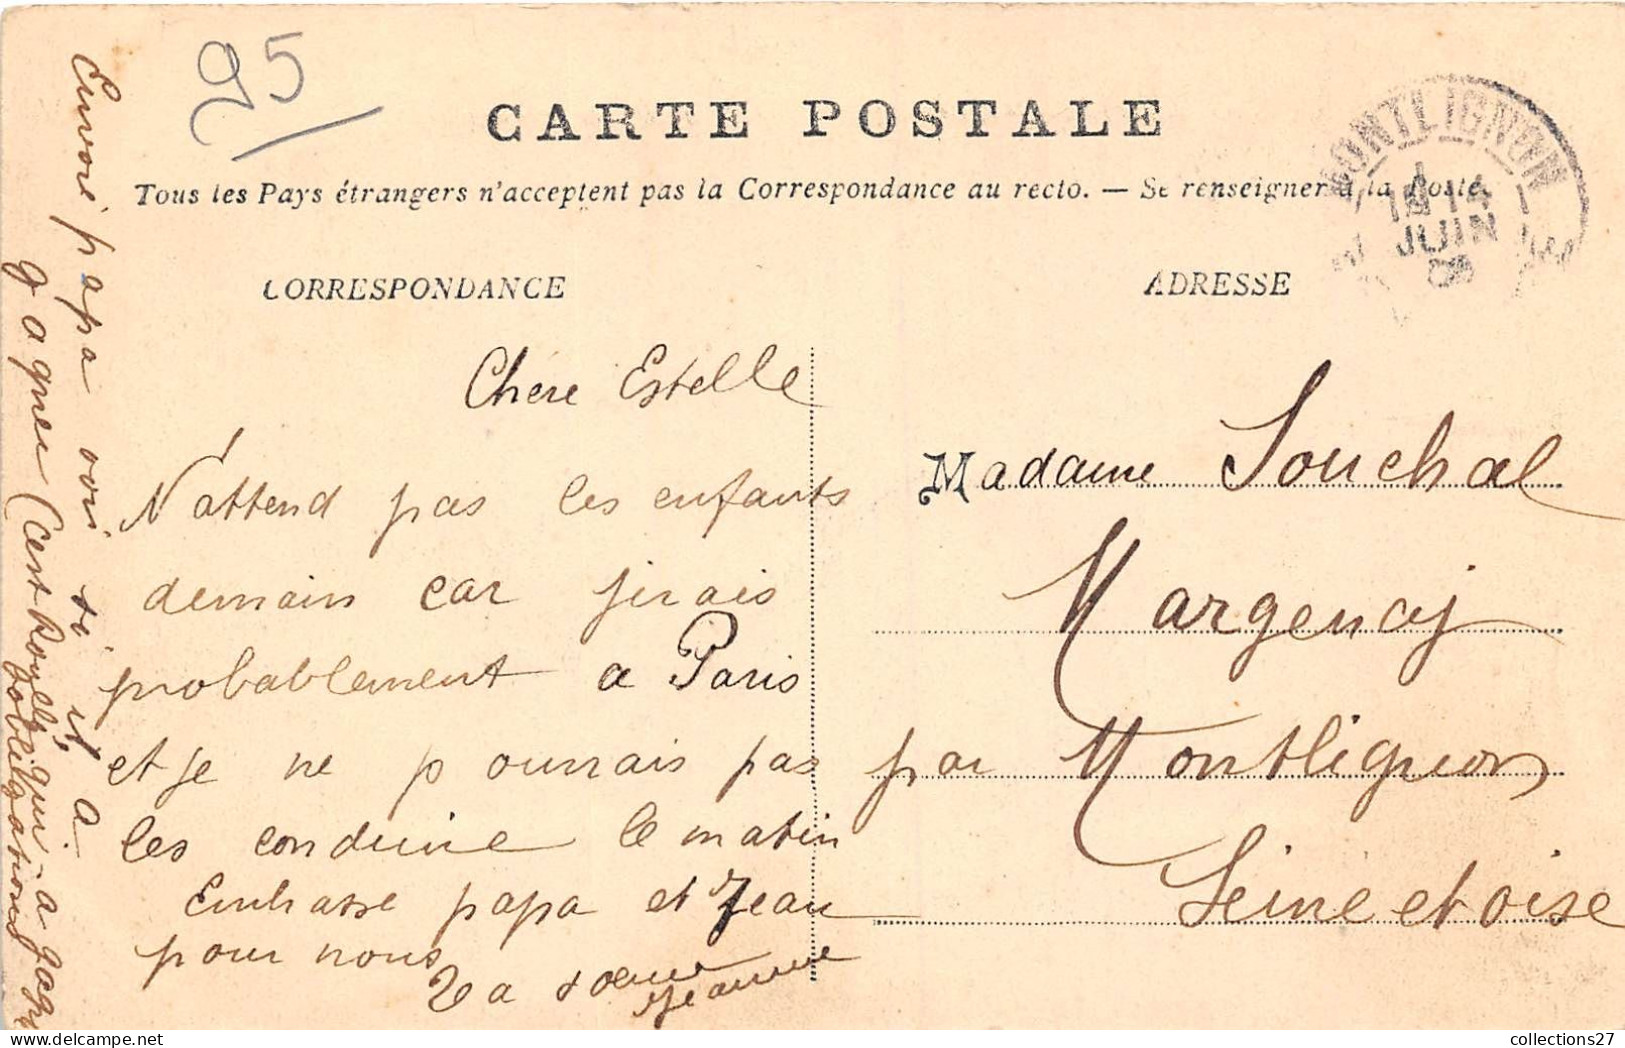 95
CARTE POSTALE
Tous les Pays étrangers n'acceptent pas la Correspondance au recto. — Se renseigner à la Poste.
MONTLIGNON
14
JUIN
CORRESPONDANCE
ADRESSE
Chere Estelle
N'attend pas les enfants
demain car j'irais
probablement a Paris
et je ne pourrais pas
les conduire le matin
Embrasse papa et Jean
pour nous
Ta sœur
Jeanne
Envoie papa voir si il a
gagner (c'est qui a gagn
obligations
Madame Souchal
Margency
par Montlignon
Seine et oise
collections27